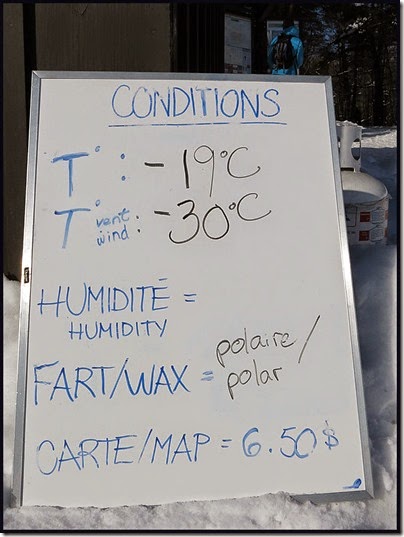 CONDITIONS
T° : -19°C
T° vent wind : -30°C
HUMIDITÉ =
HUMIDITY
FART/WAX = polaire/polar
CARTE/MAP = 6.50$